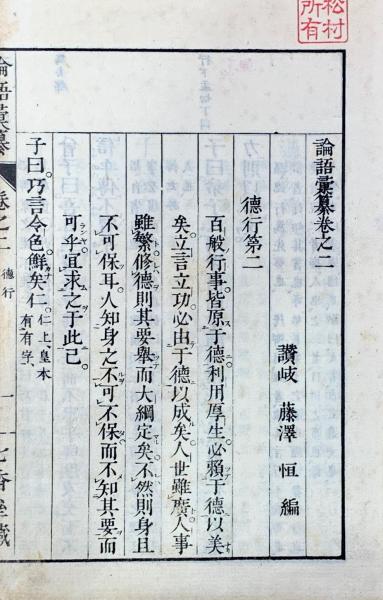 松村
所有
論語彙纂卷之二
讚岐 藤澤 恒 編
德行第二
百般行事皆原于德利用厚生必賴于德以美
矣立言立功必由于德以成矣人世雖廣人事
雖繁修德則其要舉而大綱定矣不然則身且
不可保耳人知身之不可不保而不知其要而
可乎宜求之于此已
子曰巧言令色鮮矣仁仁上皇本有有字
論語彙纂 卷之二 德行 一